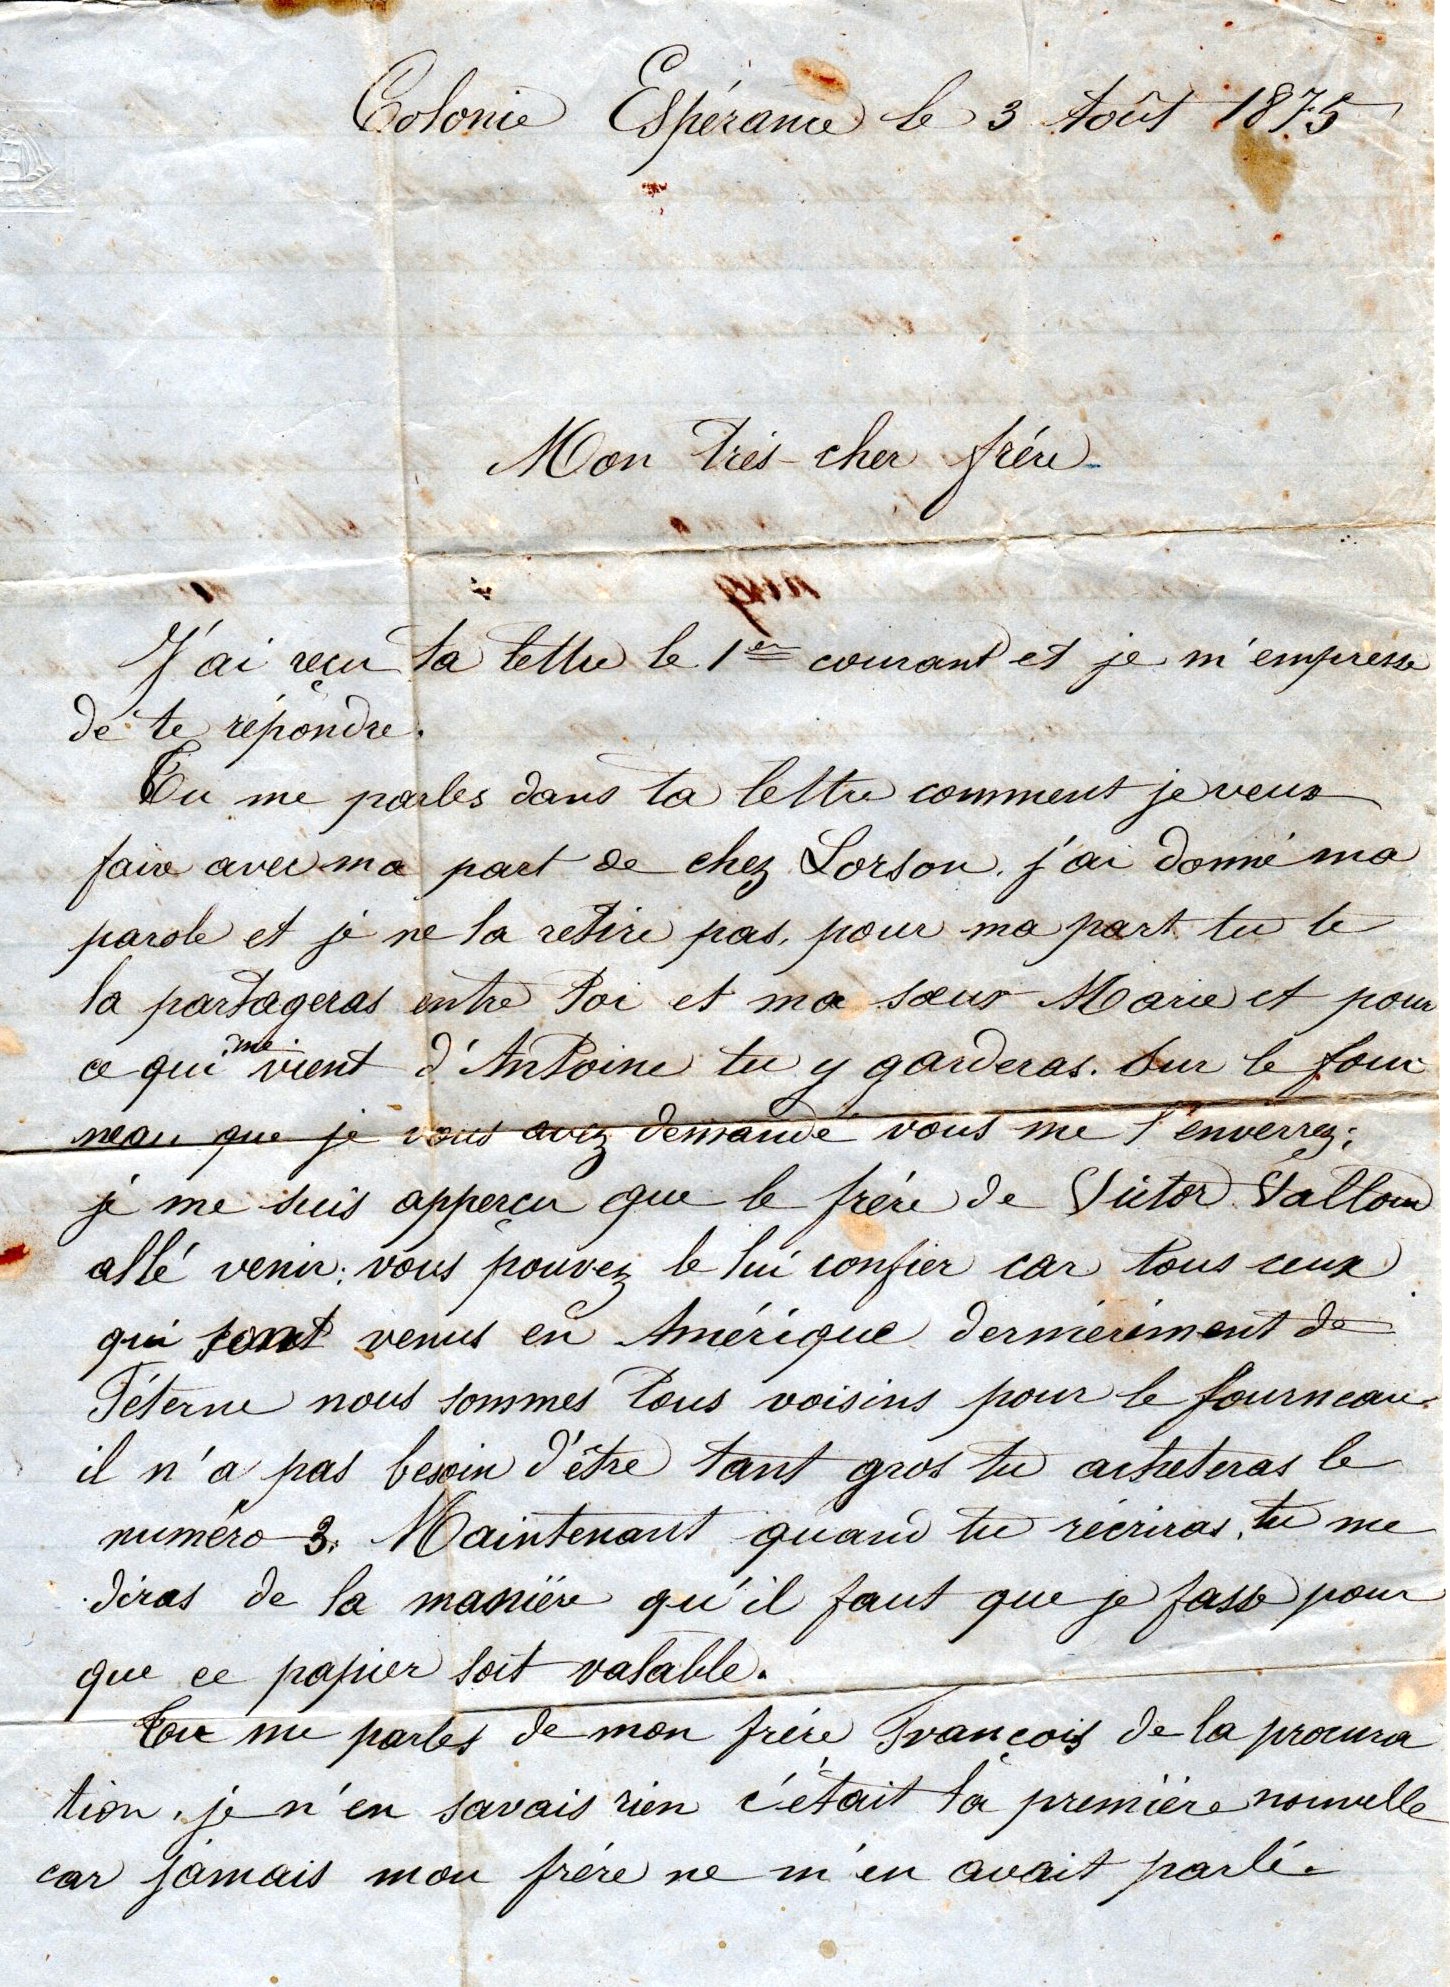 Colonie Espérance le 3 Août 1875
Mon très-cher frére
J'ai reçu ta lettre le 1er courant et je m'empresse
de te répondre.
Tu me parles dans ta lettre comment je veux
faire avec ma part de chez Lorson. j'ai donné ma
parole et je ne la retire pas, pour ma part tu te
la partageras entre toi et ma sœur Marie et pour
ce qui me vient d'Antoine tu y garderas. Sur le four
neau que je vous avez demandé vous me l'enverrez;
je me suis apperçu que le frére de Victor Vallou
allé venir; vous pouvez le lui confier car tous ceux
qui sont venus en Amérique derniérément de
Féterne nous sommes tous voisins pour le fourneau.
il n'a pas besoin d'être tant gros tu acheteras le
numéro 3. Maintenant quand tu récriras, tu me
diras de la manière qu'il faut que je fasse pour
que ce papier soit valable.
Tu me parles de mon frére François de la procura
tion. je n'en savais rien c'était la première nouvelle
car jamais mon frére ne m'en avait parlé.